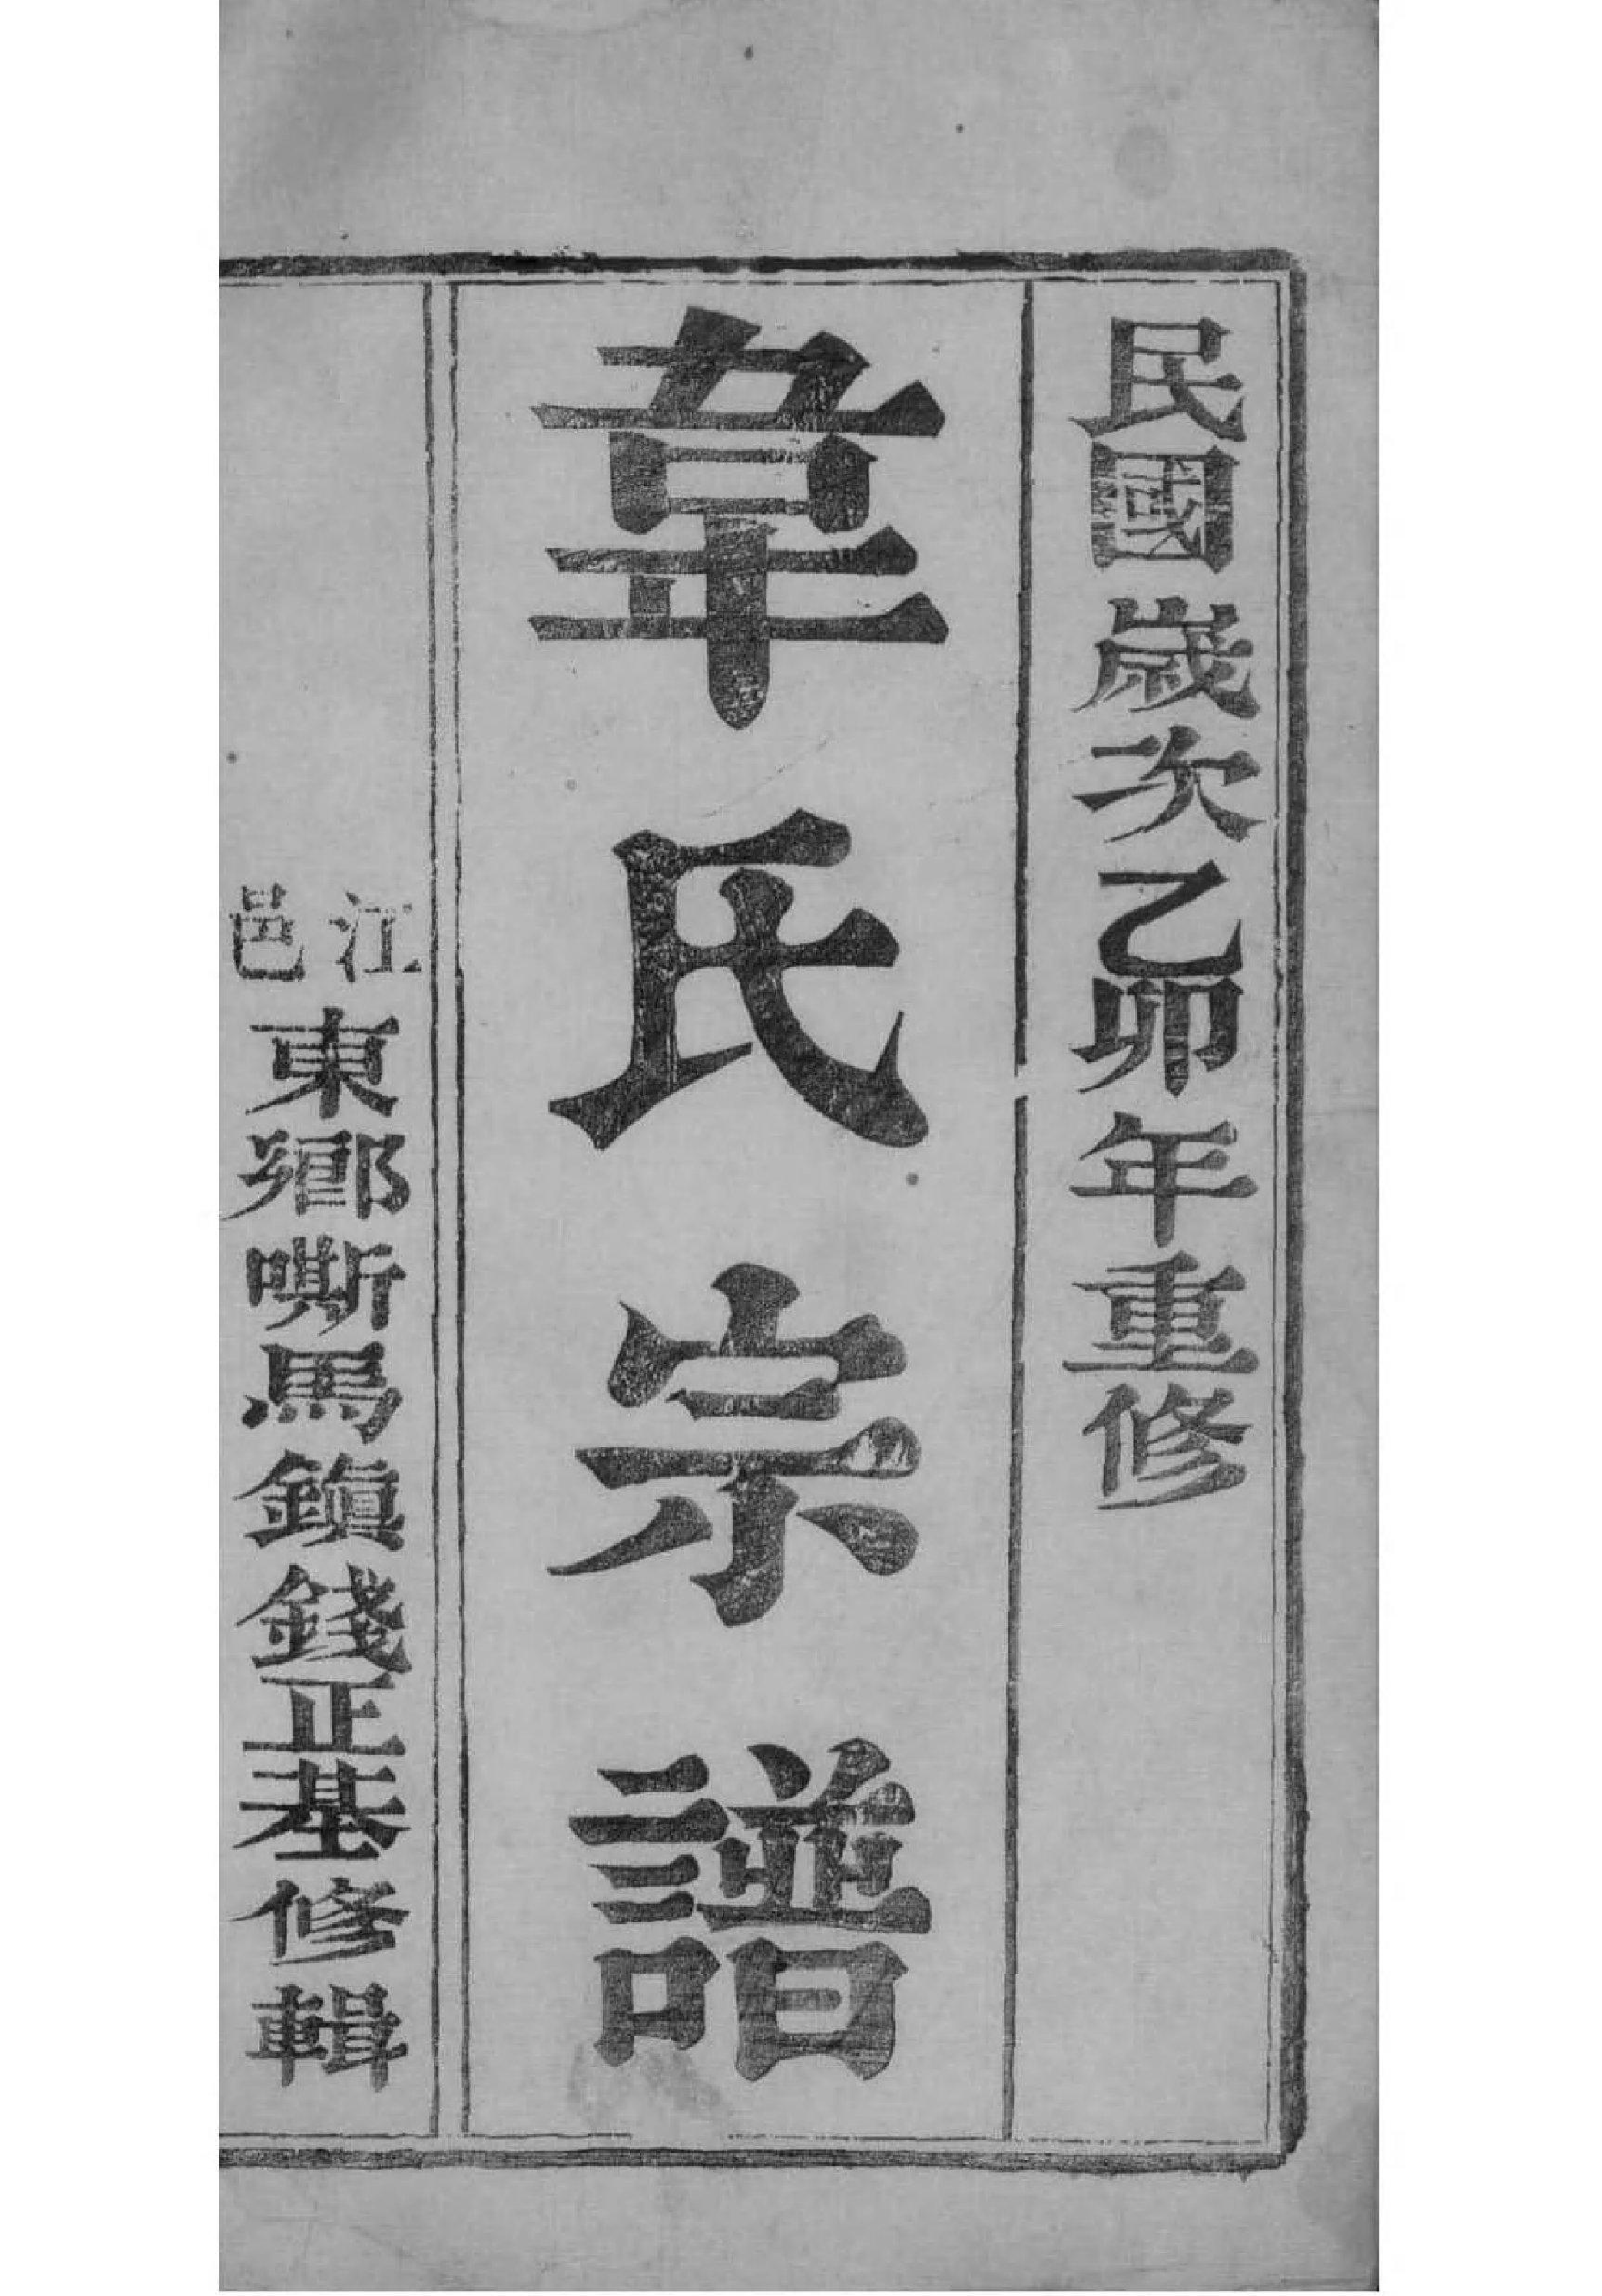 民國歲次乙卯年重修
韋氏宗譜
江邑東鄉嘶馬鎭錢正基修輯